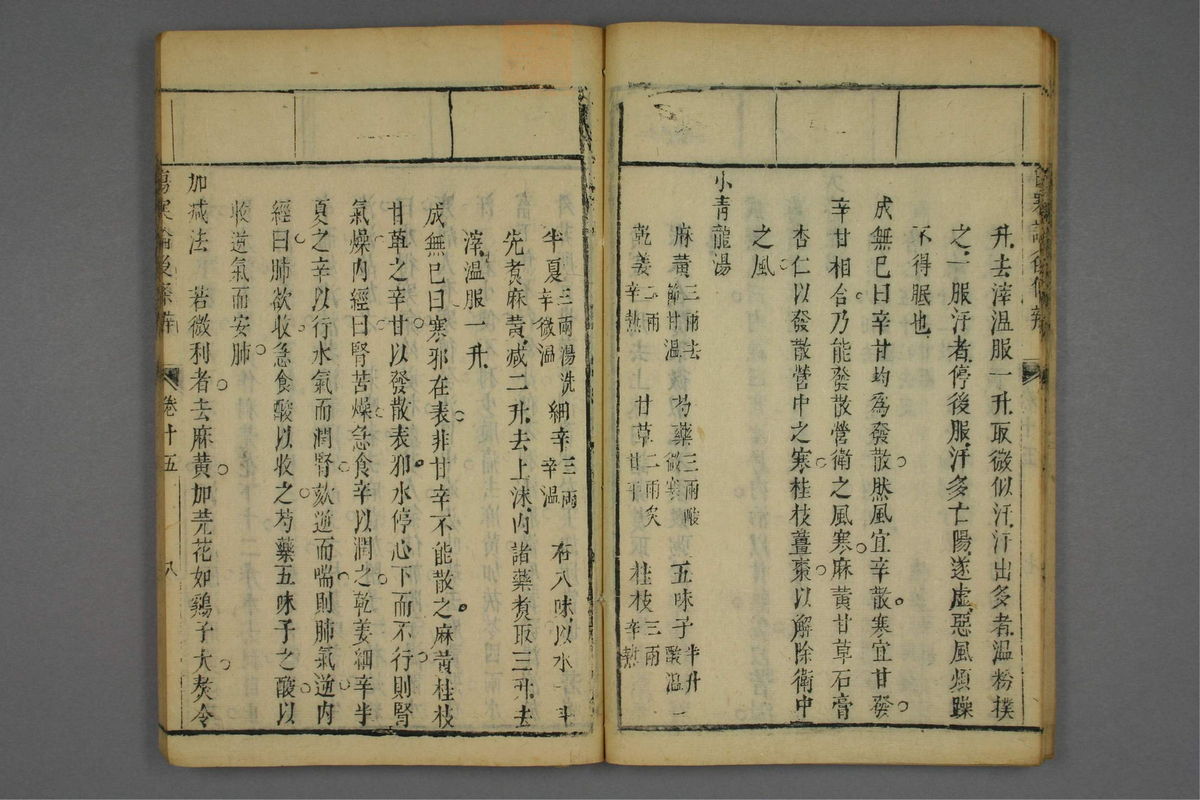 升去滓溫服一升取微似汗汗出多者溫粉撲
之一服汗者停後服汗多亡陽遂虛惡風煩躁
不得眠也
成無已曰辛甘均為發散然風宜辛散寒宜甘發
辛甘相合乃能發散營衛之風寒麻黃甘草石膏
杏仁以發散營中之寒桂枝薑棗以解除衛中
之風
小青龍湯
麻黃三兩去節甘溫 芍藥三兩酸微寒 五味子半升酸溫
乾姜二兩辛熱 甘草二兩炙甘平 桂枝三兩辛熱
半夏三兩湯洗辛微溫 細辛三兩辛溫 右八味以水一斗
先煮麻黃減二升去上沫內諸藥煮取三升去
滓溫服一升
成無已曰寒邪在表非甘辛不能散之麻黃桂枝
甘草之辛甘以發散表邪水停心下而不行則腎
氣燥內經曰腎苦燥急食辛以潤之乾姜細辛半
夏之辛以行水氣而潤腎欬逆而喘則肺氣逆內
經曰肺欲收急食酸以收之芍藥五味子之酸以
收逆氣而安肺
加減法 若微利者去麻黃加芫花如鷄子大熬令
傷寒論後條辨 卷十五 八